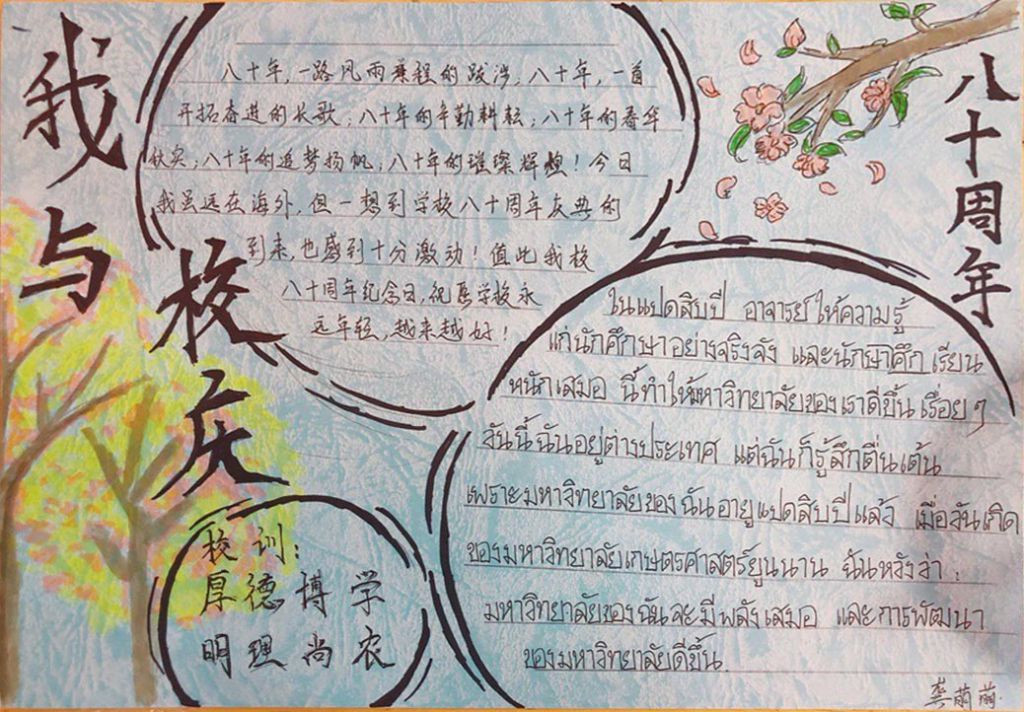 我与
校庆
八十周年
八十年,一路风雨兼程的跋涉,八十年,一首
开拓奋进的长歌;八十年的辛勤耕耘;八十年的春华
秋实;八十年的追梦扬帆,八十年的璀璨辉煌!今日
我虽远在海外,但一想到学校八十周年庆典的
到来,也感到十分激动!值此我校
八十周年纪念日,祝愿学校永
远年轻,越来越好!
ในแปดสิบปี อาจารย์ให้ความรู้
แก่นักศึกษาอย่างจริงจัง และนักษาศึก เรียน
หนักเสมอ นี้ทำให้มหาวิทยาลัยของเราดีขึ้นเรื่อยๆ
วันนี้ฉันอยู่ต่างประเทศ แต่ฉันก็รู้สึกตื่นเต้น
เพราะมหาวิทยาลัยของฉันอายุแปดสิบปีแล้ว เมื่อวันเกิด
ของมหาวิทยาลัยเกษตรศาสตร์ยูนนาน ฉันหวังว่า :
มหาวิทยาลัยของฉันจะมีพลังเสมอ และการพัฒนา
ของมหาวิทยาลัยดีขึ้น.
校训:
厚德博学
明理尚农
龚萌萌.